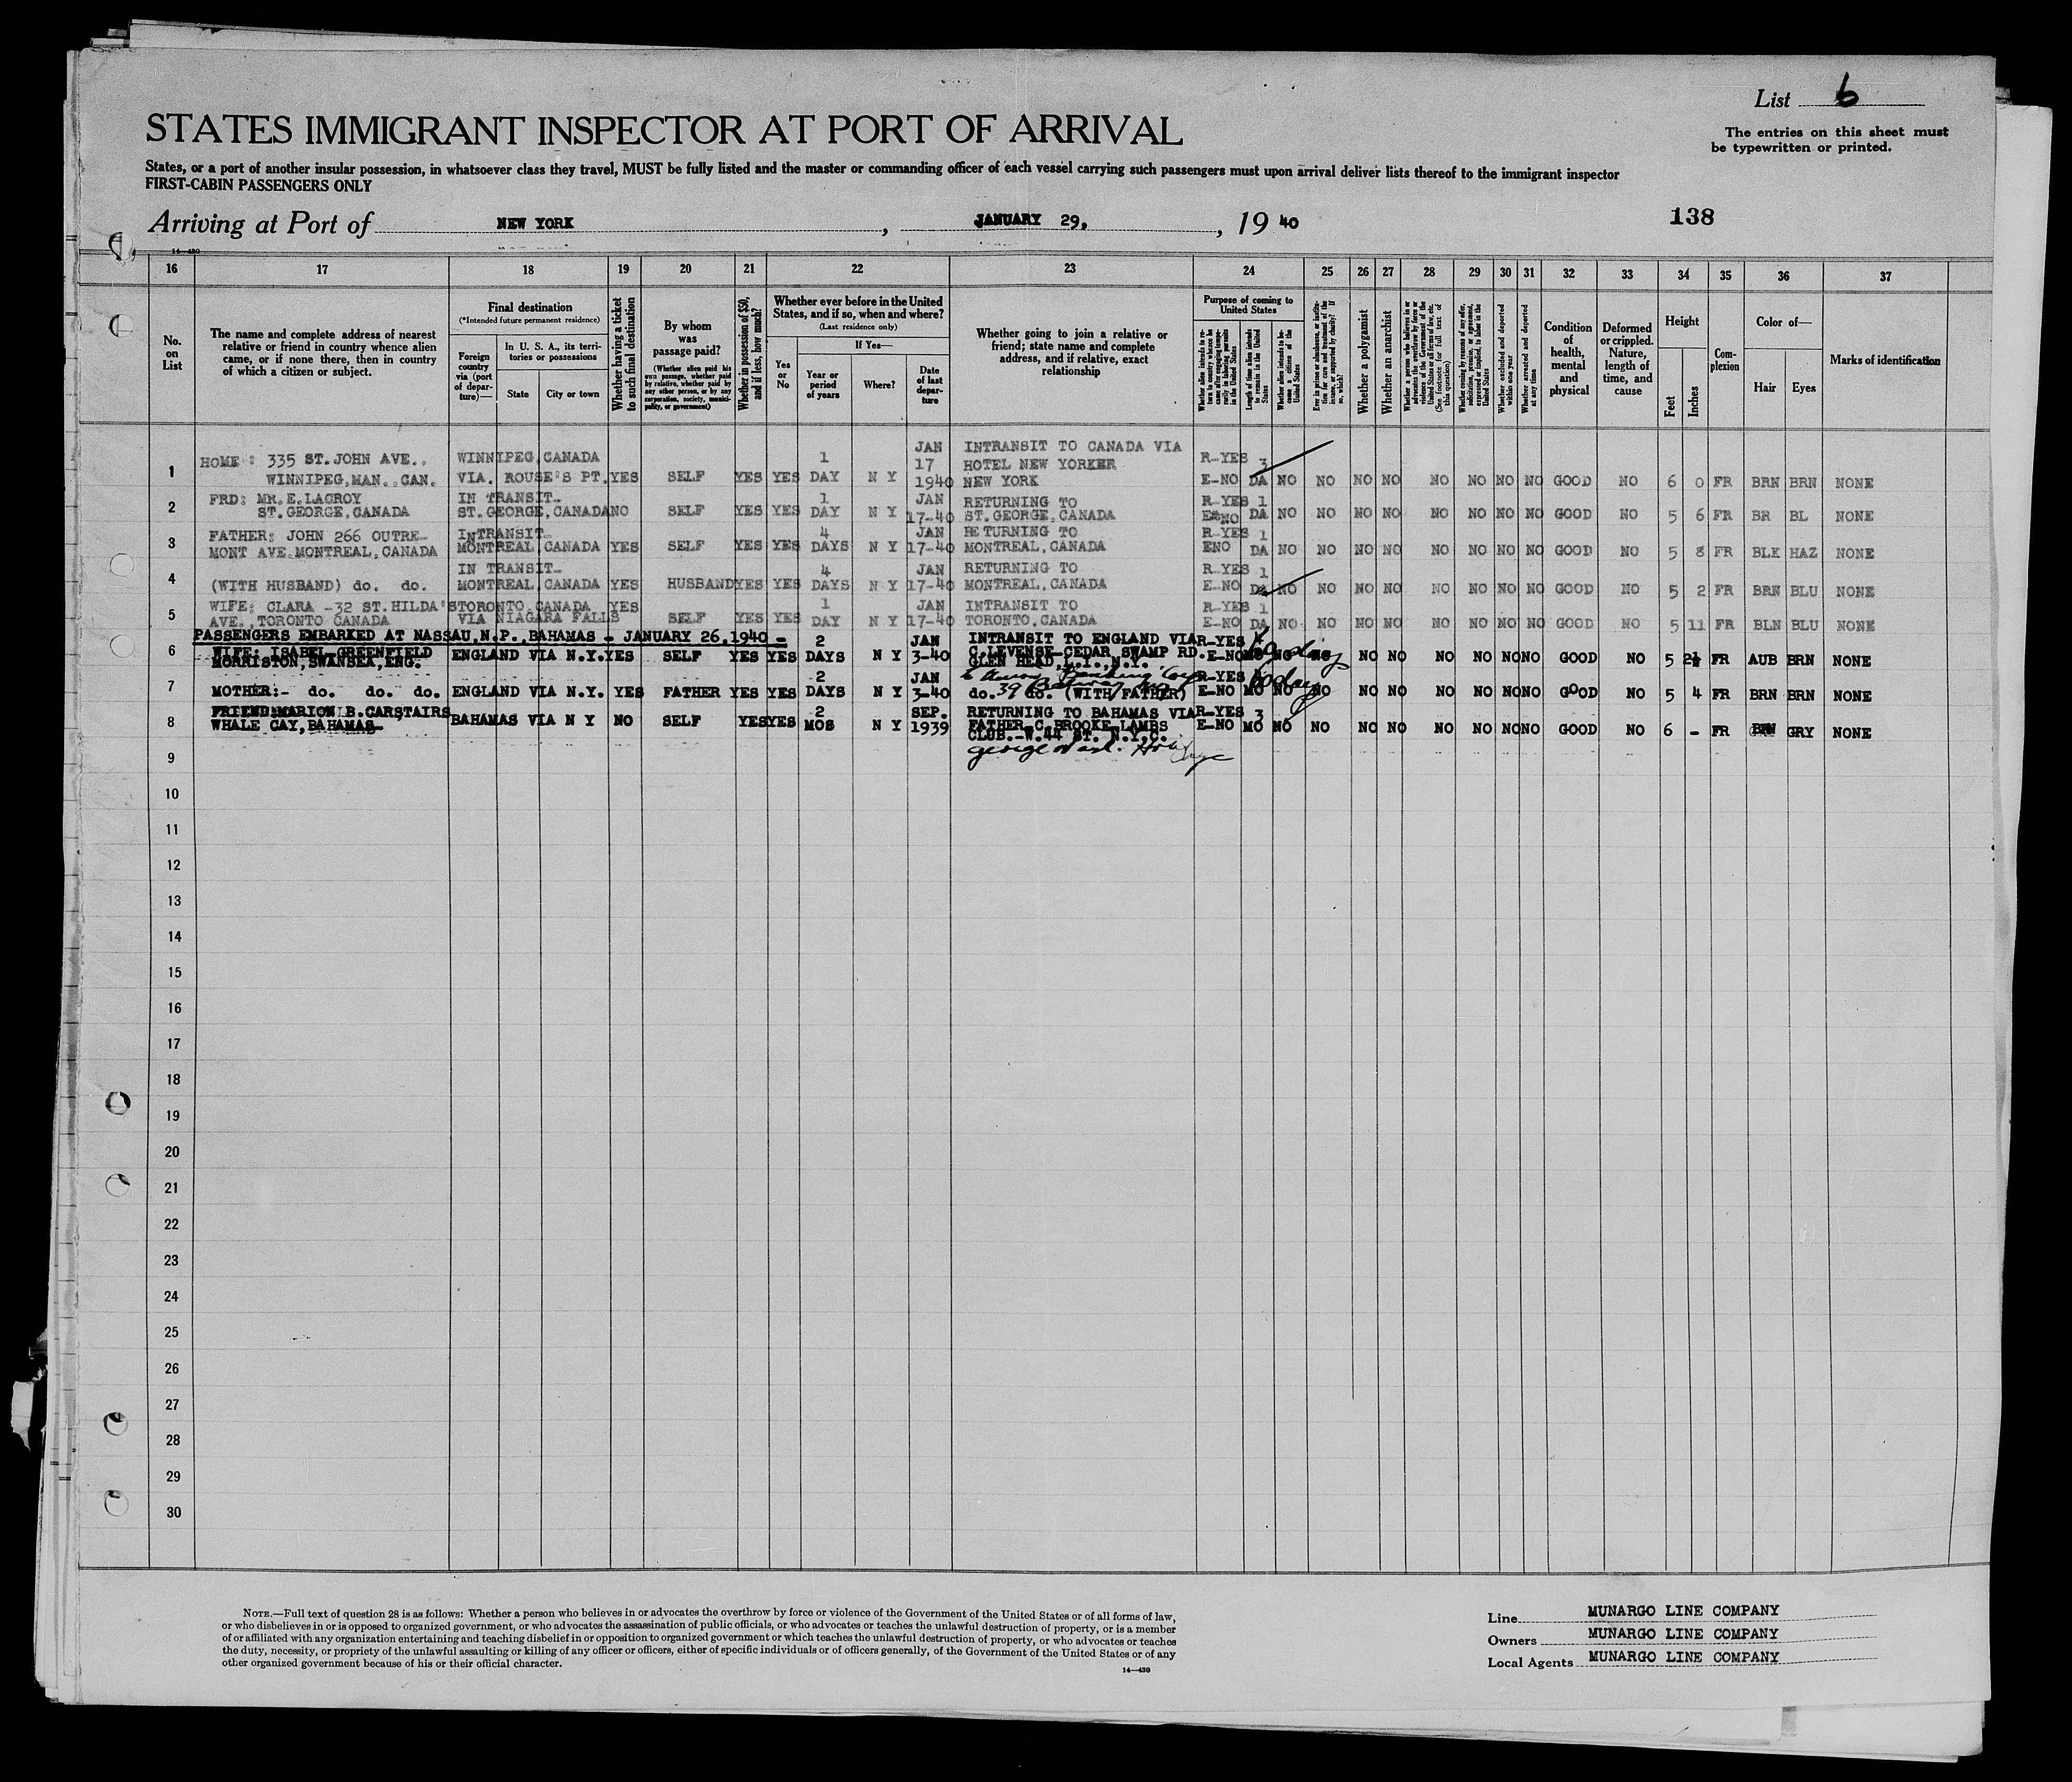 List 6
STATES IMMIGRANT INSPECTOR AT PORT OF ARRIVAL
The entries on this sheet must
be typewritten or printed.
States, or a port of another insular possession, in whatsoever class they travel, MUST be fully listed and the master or commanding officer of each vessel carrying such passengers must upon arrival deliver lists thereof to the immigrant inspector
FIRST-CABIN PASSENGERS ONLY
Arriving at Port of NEW YORK , JANUARY 29, , 19 40
138
14—430
16 17 18 19 20 21 22 23 24 25 26 27 28 29 30 31 32 33 34 35 36 37
No. on List
The name and complete address of nearest relative or friend in country whence alien came, or if none there, then in country of which a citizen or subject.
Final destination
(*Intended future permanent residence)
Foreign country via (port of departure)—
In U. S. A., its territories or possessions
State
City or town
Whether having a ticket to such final destination
By whom was passage paid?
(Whether alien paid his own passage, whether paid by relative, whether paid by any other person, or by any corporation, society, municipality, or government)
Whether in possession of $50, and if less, how much?
Whether ever before in the United States, and if so, when and where?
(Last residence only)
Yes or No
If Yes—
Year or period of years
Where?
Date of last departure
Whether going to join a relative or friend; state name and complete address, and if relative, exact relationship
Purpose of coming to United States
Whether alien intends to return to country whence he came after engaging temporarily in laboring pursuits in the United States
Length of time alien intends to remain in the United States
Whether alien intends to become a citizen of the United States
Ever in prison or almshouse, or institution for care and treatment of the insane, or supported by charity? If so, which?
Whether a polygamist
Whether an anarchist
Whether a person who believes in or advocates the overthrow by force or violence of the Government of the United States or all forms of law, etc. (See footnote for full text of this question)
Whether coming by reasons of any offer, solicitation, promise, or agreement, expressed or implied, to labor in the United States
Whether excluded and deported within one year
Whether arrested and deported at any time
Condition of health, mental and physical
Deformed or crippled. Nature, length of time, and cause
Height
Feet
Inches
Complexion
Color of—
Hair
Eyes
Marks of identification
1 HOME: 335 ST.JOHN AVE., WINNIPEG,MAN.,CAN. WINNIPEG,CANADA VIA. ROUSE'S PT. YES SELF YES YES 1 DAY N Y JAN 17 1940 INTRANSIT TO CANADA VIA HOTEL NEW YORKER NEW YORK R-YES E-NO 3 DA NO NO NO NO NO NO NO NO GOOD NO 6 0 FR BRN BRN NONE
2 FRD: MR.E.LACROY ST.GEORGE,CANADA IN TRANSIT- ST.GEORGE,CANADA NO SELF YES YES 1 DAY N Y JAN 17-40 RETURNING TO ST.GEORGE,CANADA R-YES E-NO 1 DA NO NO NO NO NO NO NO NO GOOD NO 5 6 FR BR BL NONE
3 FATHER: JOHN 266 OUTRE- MONT AVE.MONTREAL,CANADA INTRANSIT- MONTREAL,CANADA YES SELF YES YES 4 DAYS N Y JAN 17-40 RETURNING TO MONTREAL,CANADA R-YES ENO 1 DA NO NO NO NO NO NO NO NO GOOD NO 5 8 FR BLK HAZ NONE
4 (WITH HUSBAND) do. do. IN TRANSIT- MONTREAL,CANADA YES HUSBAND YES YES 4 DAYS N Y JAN 17-40 RETURNING TO MONTREAL,CANADA R-YES E-NO 1 DA NO NO NO NO NO NO NO NO GOOD NO 5 2 FR BRN BLU NONE
5 WIFE: CLARA -32 ST.HILDA'S AVE.,TORONTO CANADA TORONTO,CANADA VIA NIAGARA FALLS YES SELF YES YES 1 DAY N Y JAN 17-40 INTRANSIT TO TORONTO,CANADA R-YES E-NO 1 DA NO NO NO NO NO NO NO NO GOOD NO 5 11 FR BLN BLU NONE
PASSENGERS EMBARKED AT NASSAU,N.P.,BAHAMAS - JANUARY 26,1940 -
6 WIFE: ISABEL-GREENFIELD MORRISTON,SWANSEA,ENG. ENGLAND VIA N.Y. YES SELF YES YES 2 DAYS N Y JAN 3-40 INTRANSIT TO ENGLAND VIA C.LEVENSE-CEDAR SWAMP RD. GLEN HEAD,L.I.,N.Y. R-YES E-NO MO NO NO NO NO NO NO NO NO GOOD NO 5 2½ FR AUB BRN NONE
7 MOTHER:- do. do. do. ENGLAND VIA N.Y. YES FATHER YES YES 2 DAYS N Y JAN 3-40 do. 39 do. (WITH FATHER) R-YES E-NO MO NO 60 days NO NO NO NO NO NO NO GOOD NO 5 4 FR BRN BRN NONE
8 FRIEND:MARION B.CARSTAIRS WHALE CAY,BAHAMAS- BAHAMAS VIA N Y NO SELF YES YES 2 MOS N Y SEP. 1939 RETURNING TO BAHAMAS VIA FATHER-C.BROOKE-LAMBS CLUB.-W.44 ST. N.Y.C. R-YES E-NO 3 MO NO NO NO NO NO NO NO NO GOOD NO 6 - FR BRN GRY NONE
9
10
11
12
13
14
15
16
17
18
19
20
21
22
23
24
25
26
27
28
29
30
NOTE.—Full text of question 28 is as follows: Whether a person who believes in or advocates the overthrow by force or violence of the Government of the United States or of all forms of law,
or who disbelieves in or is opposed to organized government, or who advocates the assassination of public officials, or who advocates or teaches the unlawful destruction of property, or is a member
of or affiliated with any organization entertaining and teaching disbelief in or opposition to organized government or which teaches the unlawful destruction of property, or who advocates or teaches
the duty, necessity, or propriety of the unlawful assaulting or killing of any officer or officers, either of specific individuals or of officers generally, of the Government of the United States or of any
other organized government because of his or their official character.
14—430
Line MUNARGO LINE COMPANY
Owners MUNARGO LINE COMPANY
Local Agents MUNARGO LINE COMPANY